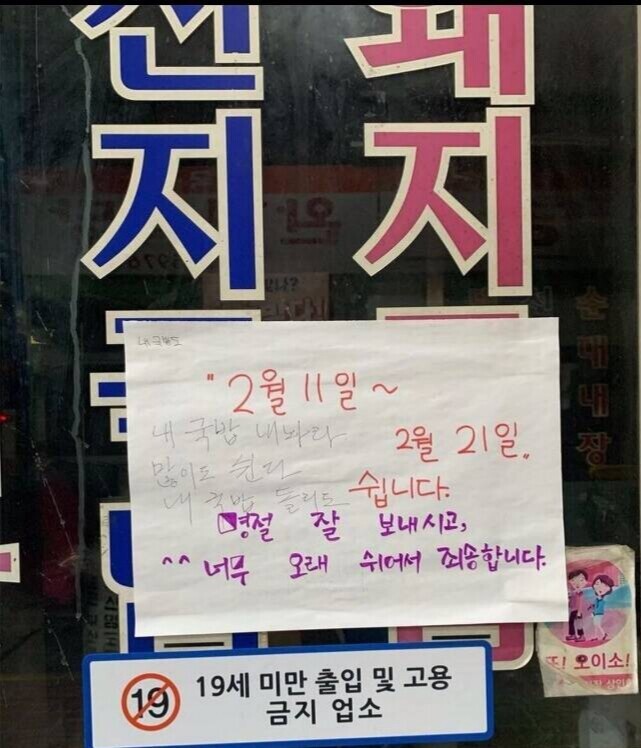 전지
돼지
내 국밥도
" 2월 11일 ~
2월 21일 "
쉽니다.
내 국밥 내놔라
많이도 쉰다
내 국밥 돌리도
명절 잘 보내시고,
^^ 너무 오래 쉬어서 죄송합니다.
순대내장
또! 오이소!
19
19세 미만 출입 및 고용
금지 업소